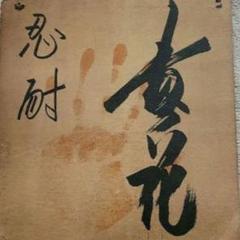 貴花
忍耐